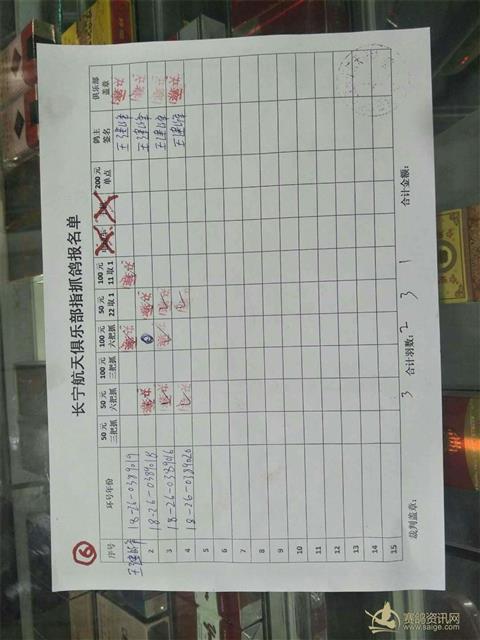 ⑥
长宁航天俱乐部指抓鸽报名单
序号 环号年份 50元三把抓 50元六把抓 100元三把抓 100元六把抓 50元22取1 100元11取1 200元单点 鸽主签名 俱乐部盖章
18-26-0389019 王建峰
2 18-26-0389018 王建峰
3 18-26-0389016 王建峰
4 18-26-0389020 王建峰
5
6
7
8
9
10
11
12
13
14
15
3 2 3 1
裁判盖章： 合计羽数： 合计金额：
赛鸽资讯网
www.saige.com